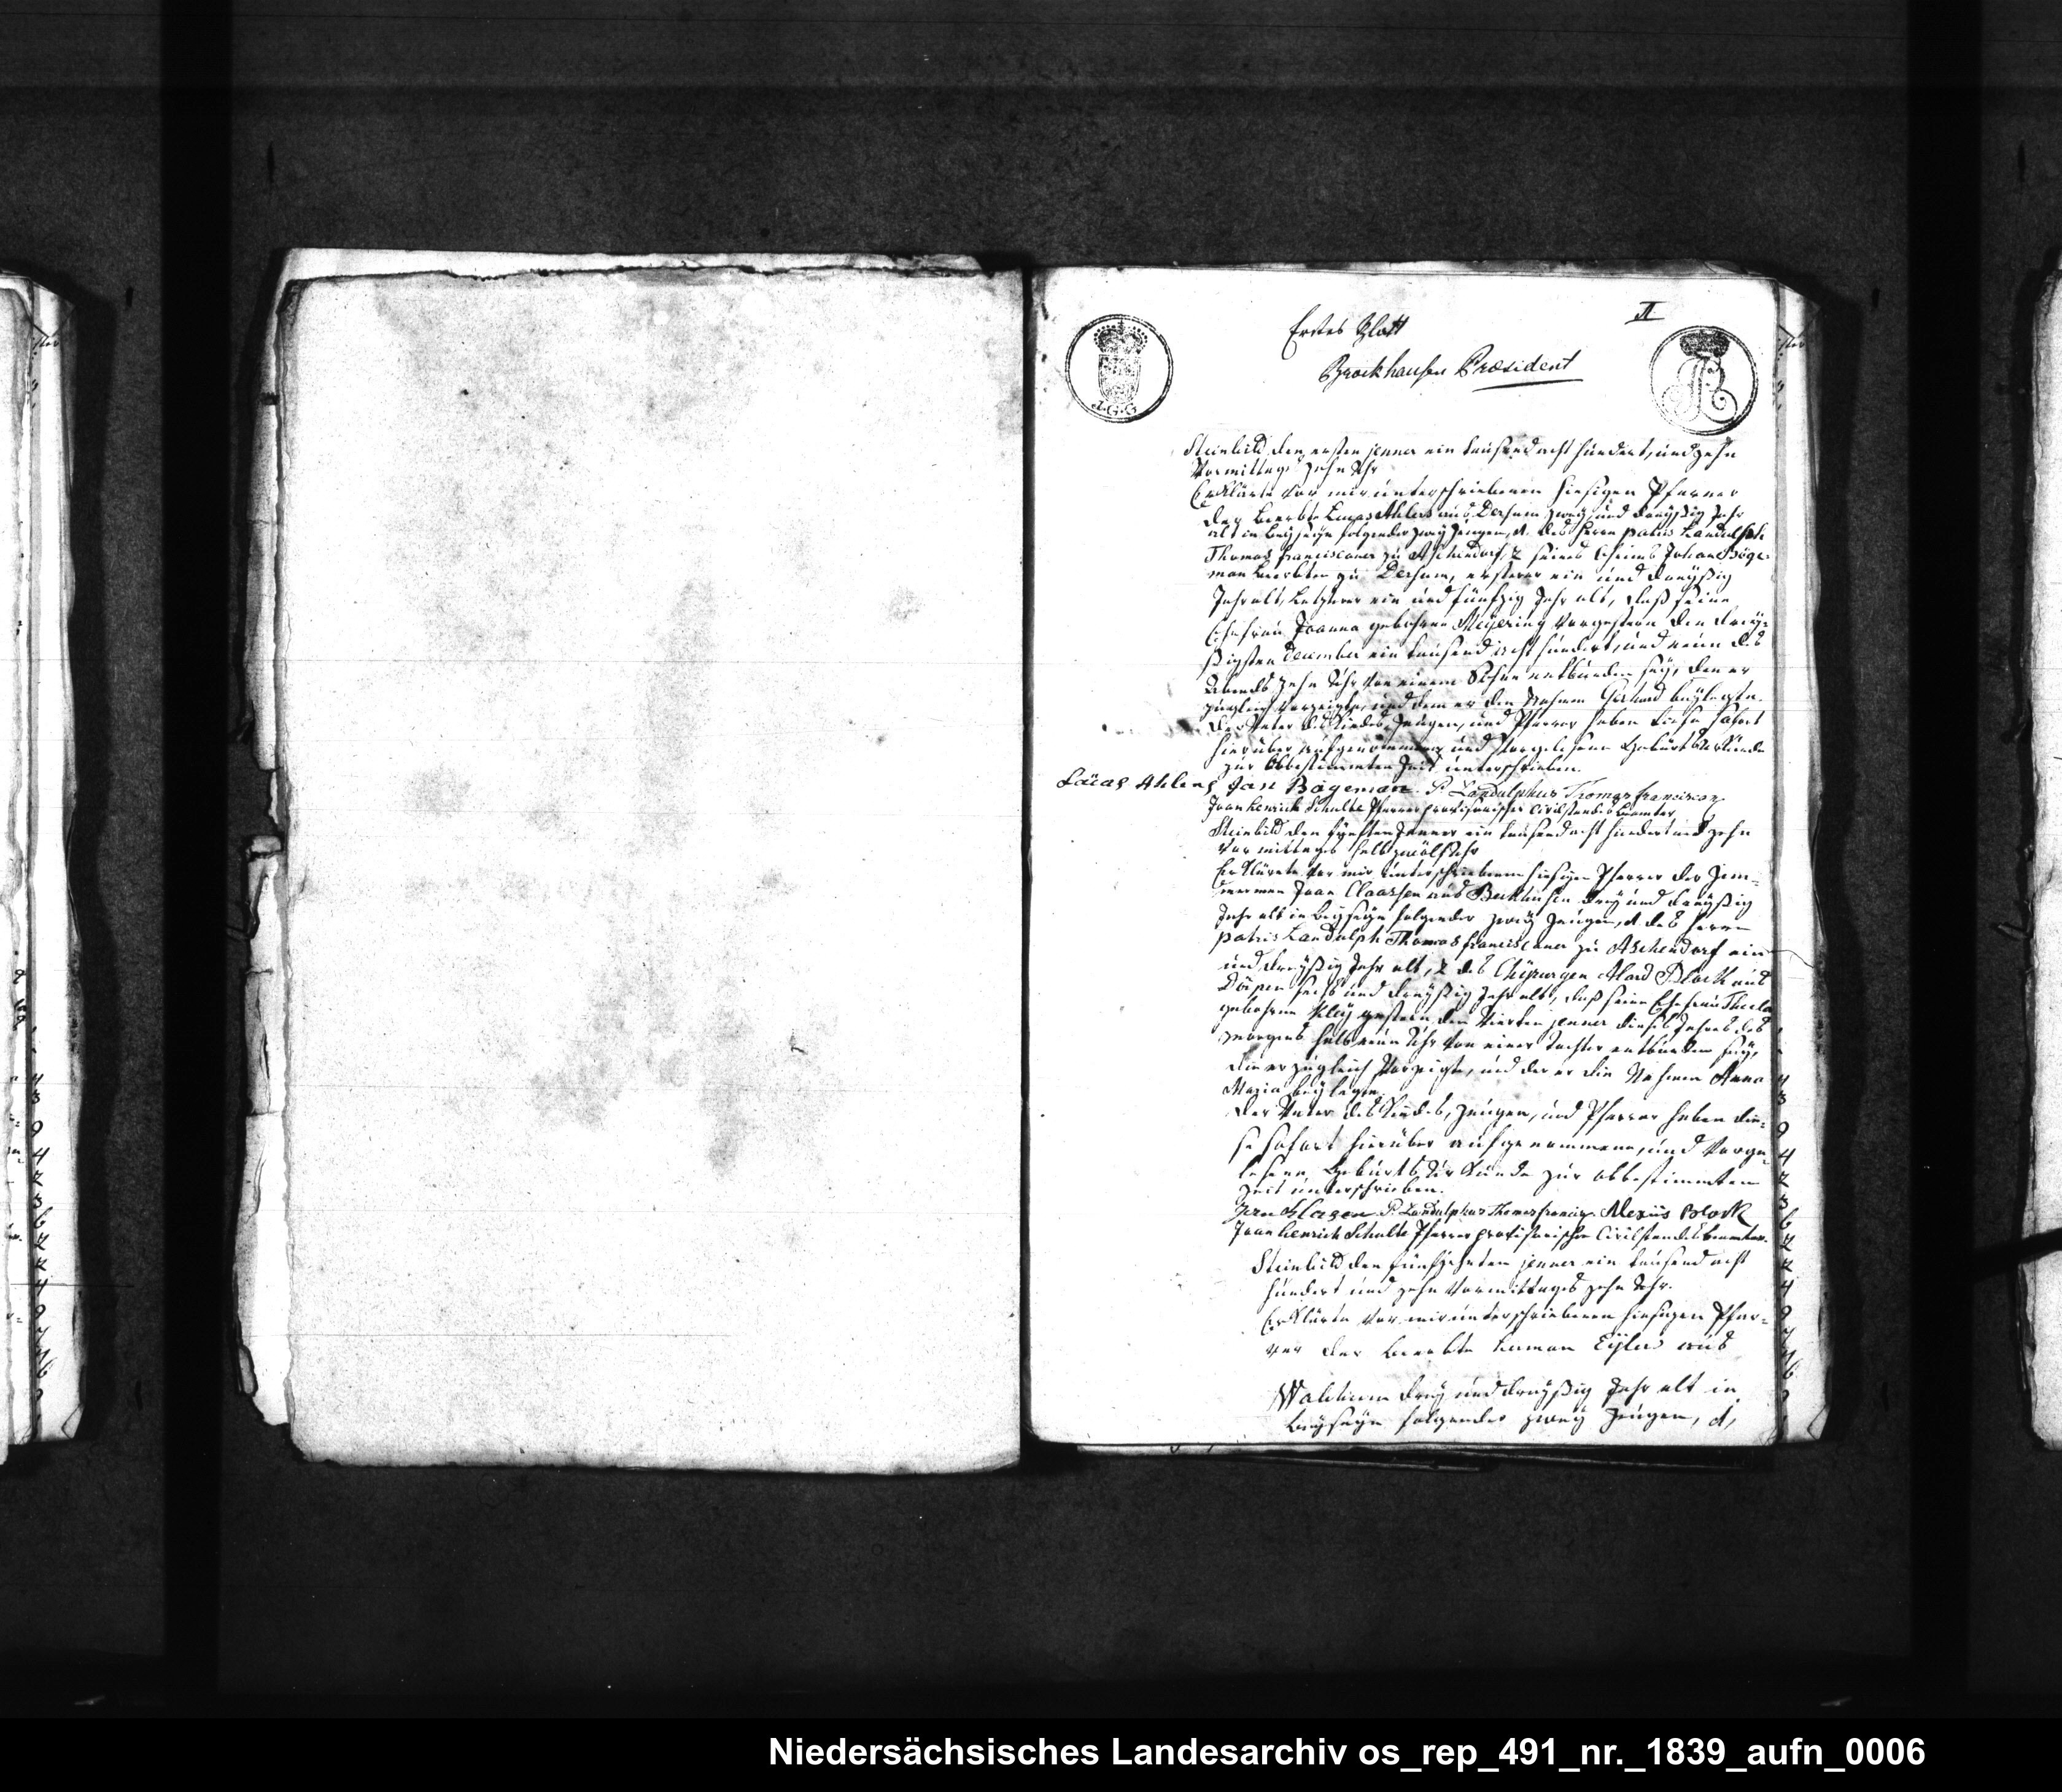 Erstes Blatt
Brockhausen Præsident
A.G.G
Steinbild den ersten jenner ein tausend acht hundert, und zehn
Vormittags zehn Uhr
Erklärte vor mir unterschriebenen hiesigen Pfarrer
der Lucas Ahlers aus Dersum zwey und dreyßig Jahr
alt in beyseyn folgender zwey zeugen, 1. des Herrn patris Landulph
Thomas franciscaner zu Aschendorf, 2 seines Oheims Johan Böge-
man zu Dersum, ersterer ein und dreyßig
Jahr alt, letzterer ein und fünfzig Jahr alt, daß seine
Ehefrau Joanna gebohrne Meyering vorgestern den drey-
ßigsten December ein tausend acht hundert, und neun des
Abends zehn Uhr von einem Sohne entbunden sey, den er
zugleich vorzeigte, und dem er den Nahmen Gerhard beylegte.
Der Vater des Kindes, Zeugen, und Pfarrer haben diese sofort
hierüber aufgenommene und vorgelesene Geburts Urkunde
zur obbestimmten Zeit unterschrieben.
Lucas Ahlers Jan Bögeman P. Landulphus Thomas franciscan
Joan henrich Schulte Pfarrer provisorischer Civilstandes beamter
Steinbild den fünften Jenner ein tausend acht hundert und zehn
Vormittags halb zwölf Uhr
Erklärte vor mir unterschriebenen hiesigen Pfarrer der Zim-
merman Joan Claassen aus drey und dreyßig
Jahr alt in beyseyn folgender zwey Zeugen, 1. des Herrn
patris Landulph Thomas franciscaner zu Aschendorf ein
und dreyßig Jahr alt, 2 des Chirurgen Block aus
Dörpen sechs und dreyßig Jahr alt, daß seine Ehefrau Thecla
gebohrne gestern den vierten jenner dieses Jahres des
morgens halb neun Uhr von einer Tochter entbunden sey,
die er zugleich vorzeigte, und der er die Nahmen Anna
Maria beylegte.
Der Vater des Kindes, Zeugen, und Pfarrer haben die-
se sofort hierüber aufgenommene, und vorge-
lesene Geburts Urkunde zur obbestimmten
Zeit unterschrieben.
Jan Klasen P. Landulphus Thomas franciscan Alexius Block
Joan henrich Schulte Pfarrer provisorischer Civilstandes beamter.
Steinbild den fünfzehnten jenner ein tausend acht
hundert und zehn Vormittages zehn Uhr.
Erklärte vor mir unterschriebenen hiesigen Pfar-
rer der Herman Eylers aus
Walchum drey und dreyßig Jahr alt in
beyseyn folgender zwey Zeugen, 1,
Niedersächsisches Landesarchiv os_rep_491_nr._1839_aufn_0006